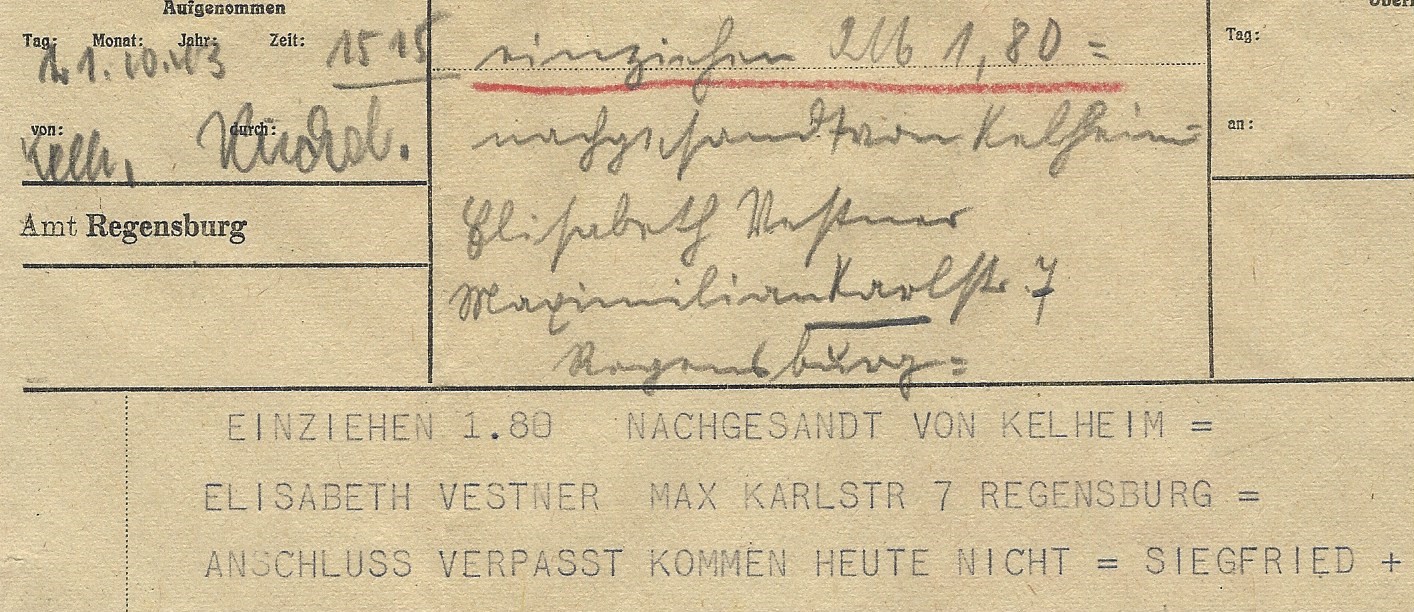 Aufgenommen
Tag: Monat: Jahr: Zeit:
21.10.43 1515
von: durch:
Kelh.
Amt Regensburg
einziehen RM 1,80 =
nachgesandt von Kelheim =
Elisabeth Vestner
Maximilian Karlstr. 7
Regensburg =
Tag:
an:
EINZIEHEN 1.80 NACHGESANDT VON KELHEIM =
ELISABETH VESTNER MAX KARLSTR 7 REGENSBURG =
ANSCHLUSS VERPASST KOMMEN HEUTE NICHT = SIEGFRIED +